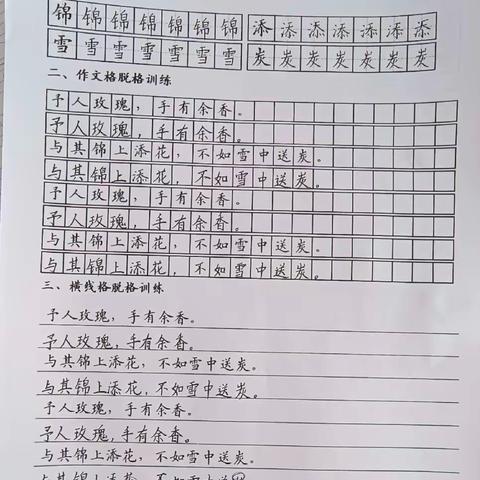 锦锦锦锦锦锦锦 添添添添添添添
雪雪雪雪雪雪雪 炭炭炭炭炭炭炭
二、作文格脱格训练
予人玫瑰，手有余香。
予人玫瑰，手有余香。
与其锦上添花，不如雪中送炭。
与其锦上添花，不如雪中送炭。
予人玫瑰，手有余香。
予人玫瑰，手有余香。
与其锦上添花，不如雪中送炭。
与其锦上添花，不如雪中送炭。
三、横线格脱格训练
予人玫瑰，手有余香。
予人玫瑰，手有余香。
与其锦上添花，不如雪中送炭。
与其锦上添花，不如雪中送炭。
予人玫瑰，手有余香。
予人玫瑰，手有余香。
与其锦上添花，不如雪中送炭。
与其锦上添花，不如雪中送